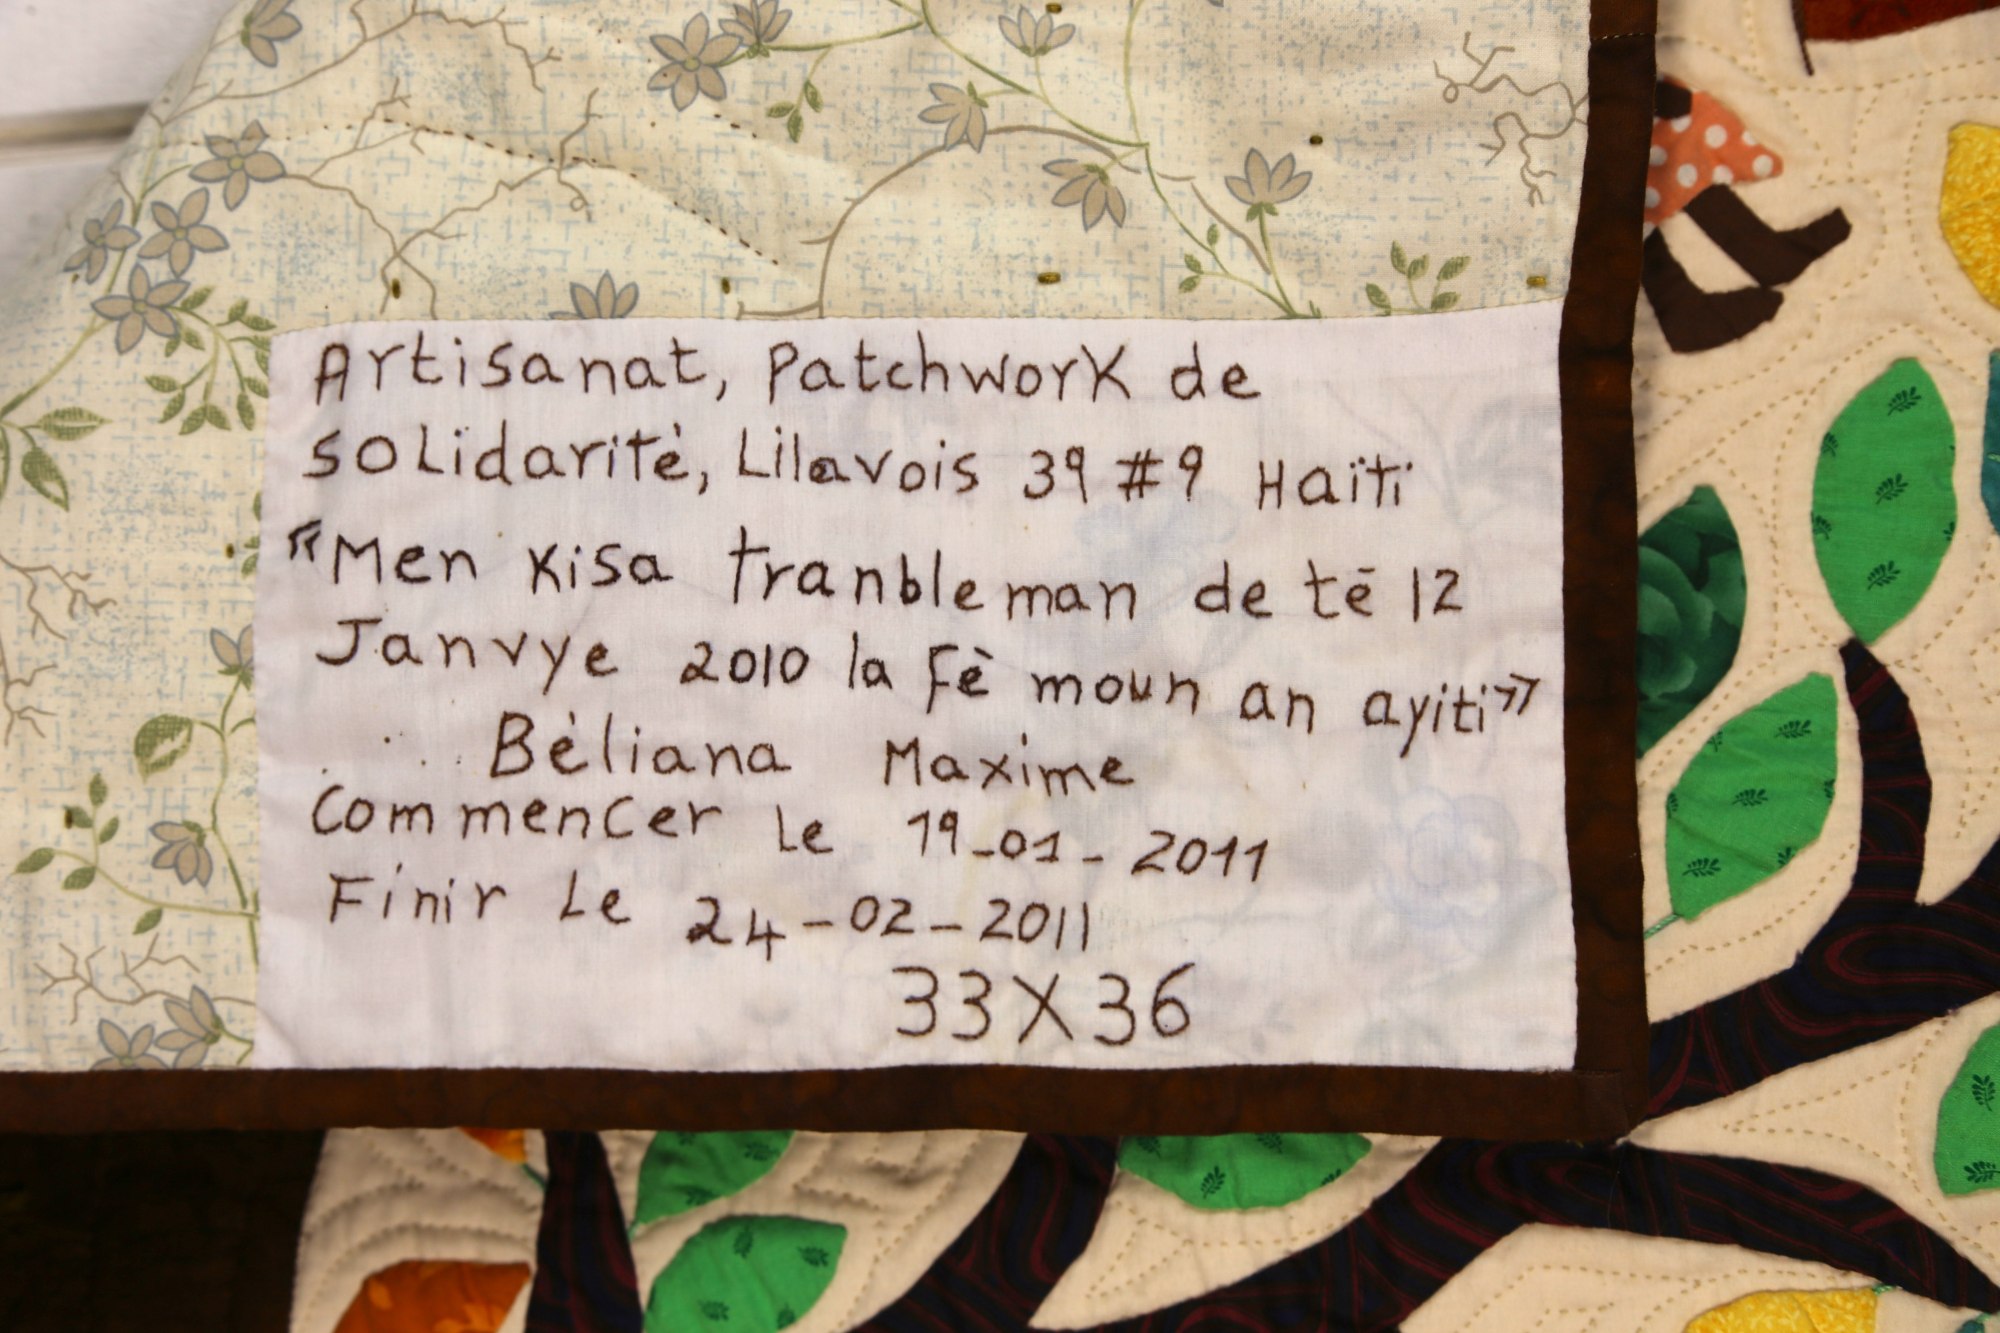 Artisanat, Patchwork de
solidaritè, Lilavois 39 #9 Haïti
«Men kisa tranbleman de tē 12
Janvye 2010 la Fè moun an ayiti»
Bèliana Maxime
commencer le 19-01-2011
Finir le 24-02-2011
33X36